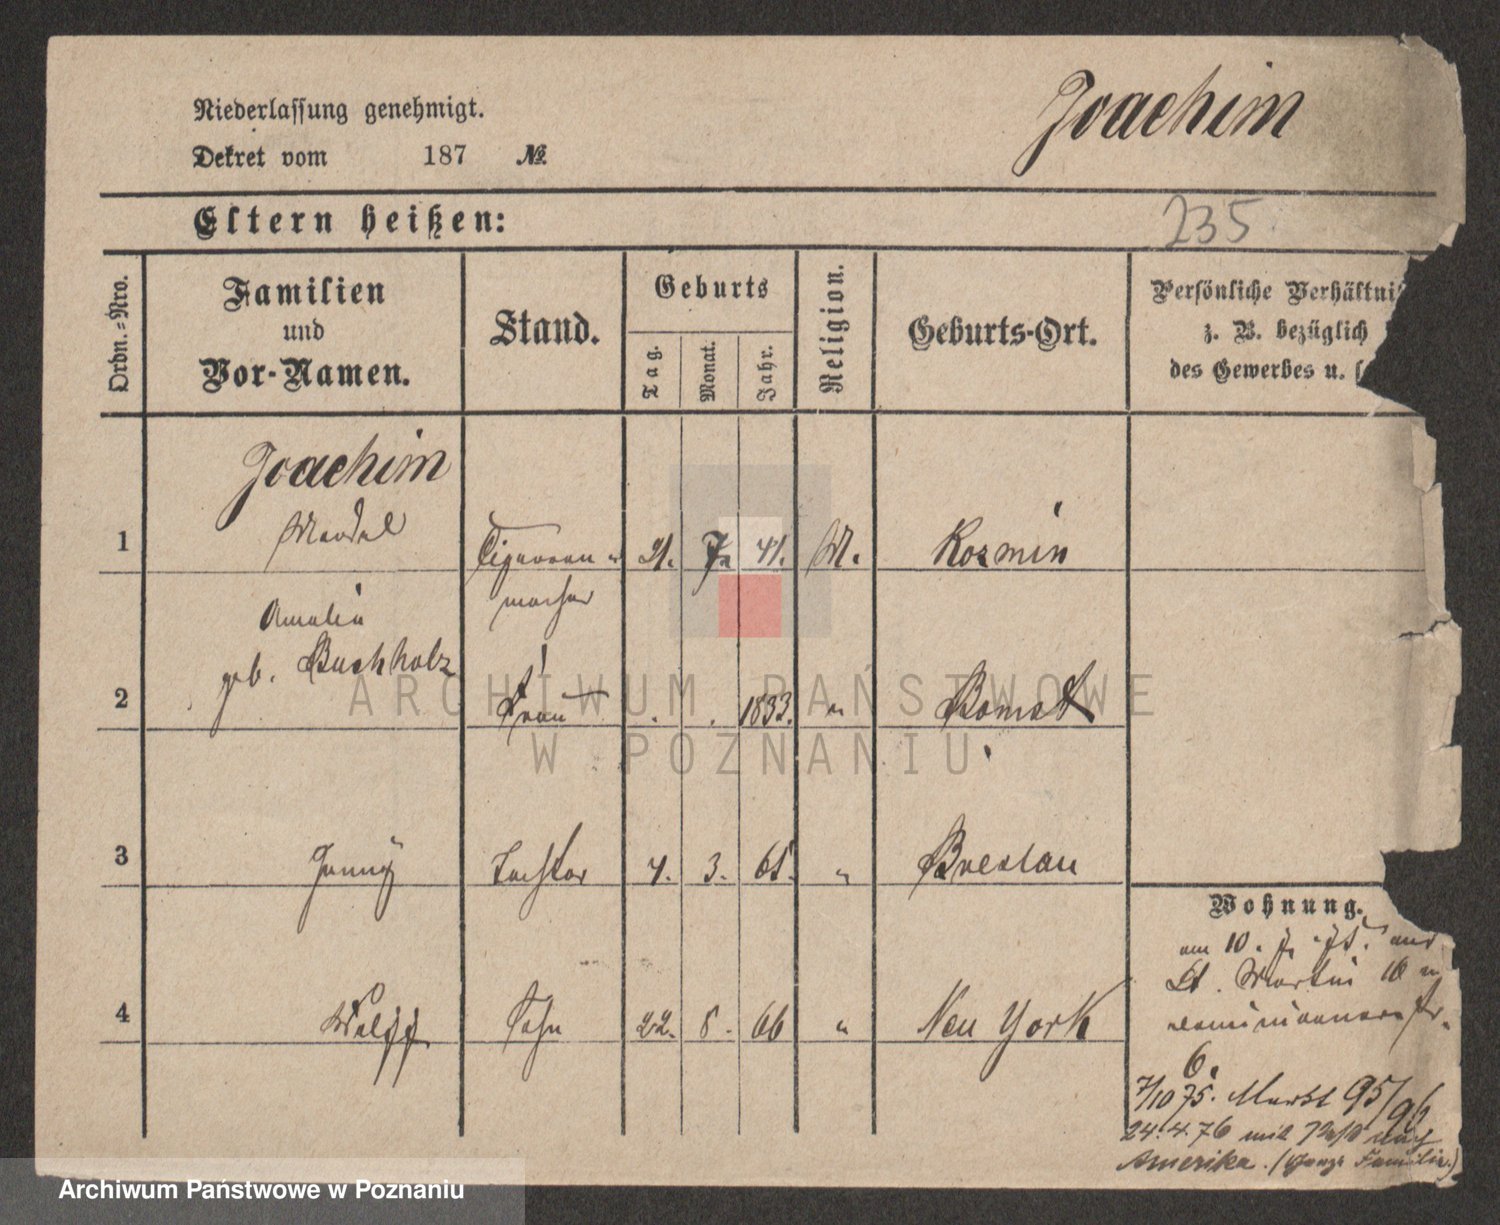 Joachim
Niederlassung genehmigt.
Dekret vom 187 №
Eltern heißen:
235
Ordn.=Nro.
Familien
und
Vor-Namen.
Stand.
Geburts
Tag.
Monat.
Jahr.
Religion.
Geburts-Ort.
Persönliche Verhältnis
z. B. bezüglich
des Gewerbes u. s
Joachim
1 Mendel Cigarren= 21. 7. 41. M. Kozmin
macher
Amalia
geb. Buchholz
2 Frau . . 1833. " Bomst
3 Jenny Tochter 4. 3. 65. " Breslau
4 Wolff Sohn 22. 8. 66 " New York
Wohnung.
am 10. 7. 75. aus
St. Martin 16
6.
7/10 75. Markt 95/96
24.4.76 mit nach
Amerika. (ganze Familie.)
ARCHIWUM PAŃSTWOWE
W POZNANIU
Archiwum Państwowe w Poznaniu